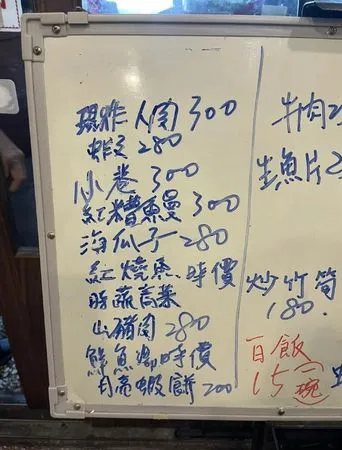 現炸 人肉 300
280
小卷 300
紅糟鰻 300
海瓜子 280
紅燒魚 時價
時蔬高菜
山豬肉 280
鮮魚湯時價
月亮蝦餅 200
牛肉2
生魚片2
炒竹筍
180.
白飯
15 一碗